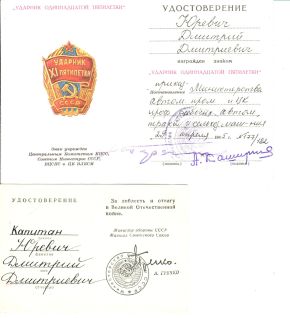 "УДАРНИК ОДИННАДЦАТОЙ ПЯТИЛЕТКИ"
УДАРНИК
XI ПЯТИЛЕТКИ
СССР
Знак учрежден
Центральным Комитетом КПСС,
Советом Министров СССР,
ВЦСПС и ЦК ВЛКСМ
УДОСТОВЕРЕНИЕ
Юревич
Дмитрий
Дмитриевич
награжден знаком
"УДАРНИК ОДИННАДЦАТОЙ ПЯТИЛЕТКИ"
Министерства
автом пром и ЦК
автом,
апреля
УДОСТОВЕРЕНИЕ
Капитан
Юревич
Дмитрий
Дмитриевич
За доблесть и отвагу
в Великой Отечественной
войне.
Министр обороны СССР
Маршал Советского Союза
А. ГРЕЧКО